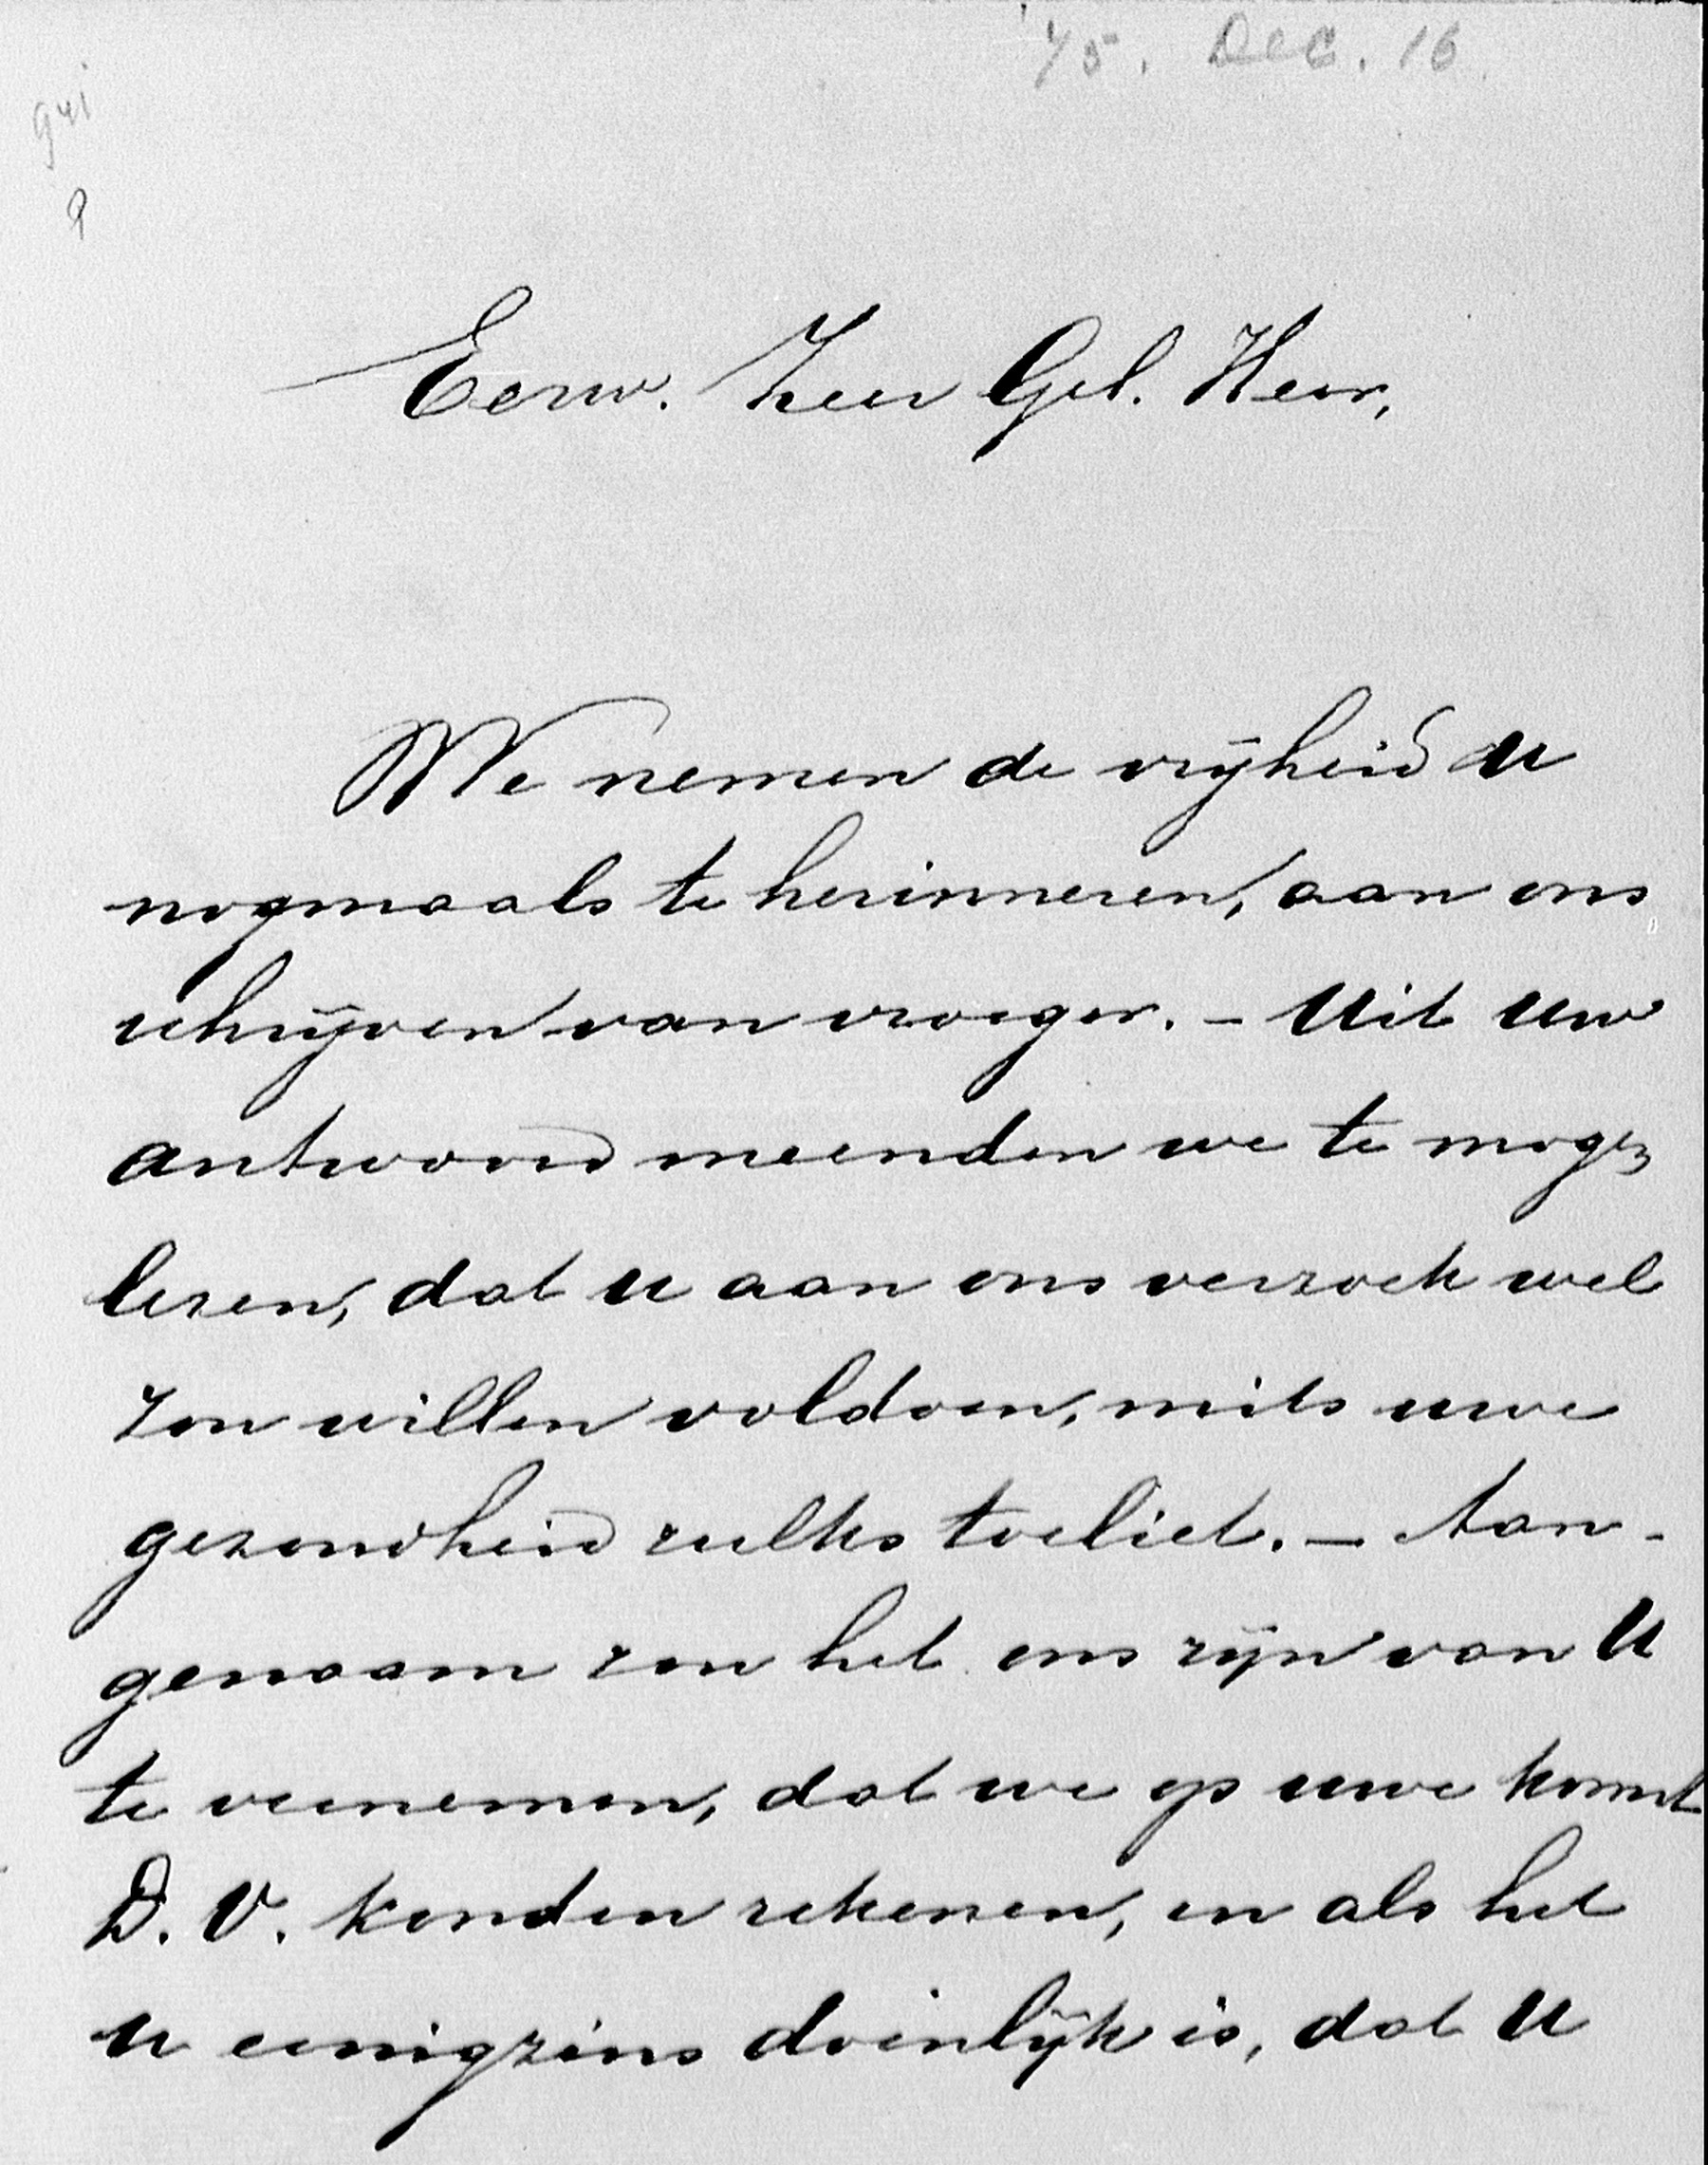 '75. Dec. 16
Eerw. Zeer Gel. Heer,
We nemen de vrijheid U
nogmaals te herinneren, aan ons
schrijven van vroeger. - Uit Uw
antwoord meenden we te mogen
lezen, dat U aan ons verzoek wel
zou willen voldoen, mits uwe
gezondheid zulks toeliet. - Aan-
genaam zou het ons zijn van U
te vernemen, dat we op uwe komst
D. V. konden rekenen, en als het
U eenigzins doenlijk is, dat U